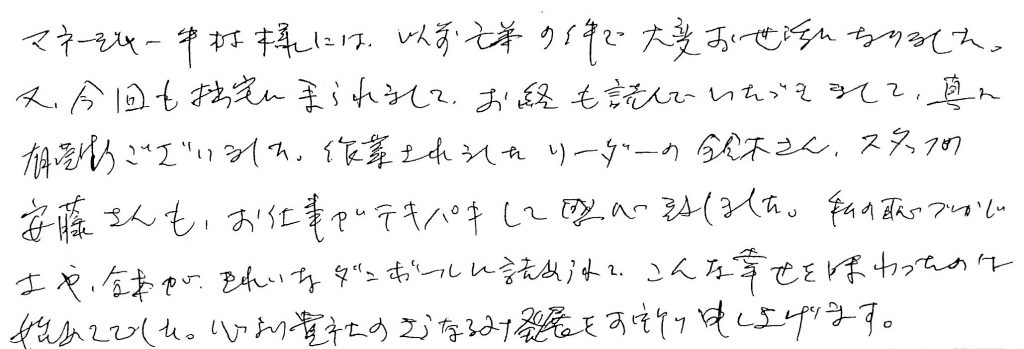 マネージャー中村様には、以前も弟の件で大変お世話になりました。
又、今回も拙宅に来られまして、お経も読んでいただきまして、真に
有難うございました。作業されましたリーダーの鈴木さん、スタッフの
安藤さんも、お仕事がテキパキして感心致しました。私の恥づかしい
本や、全集が、きれいなダンボールに詰められて、こんな幸せを味わったのは
始めてでした。心より貴社のさらなる発展をお祈り申し上げます。